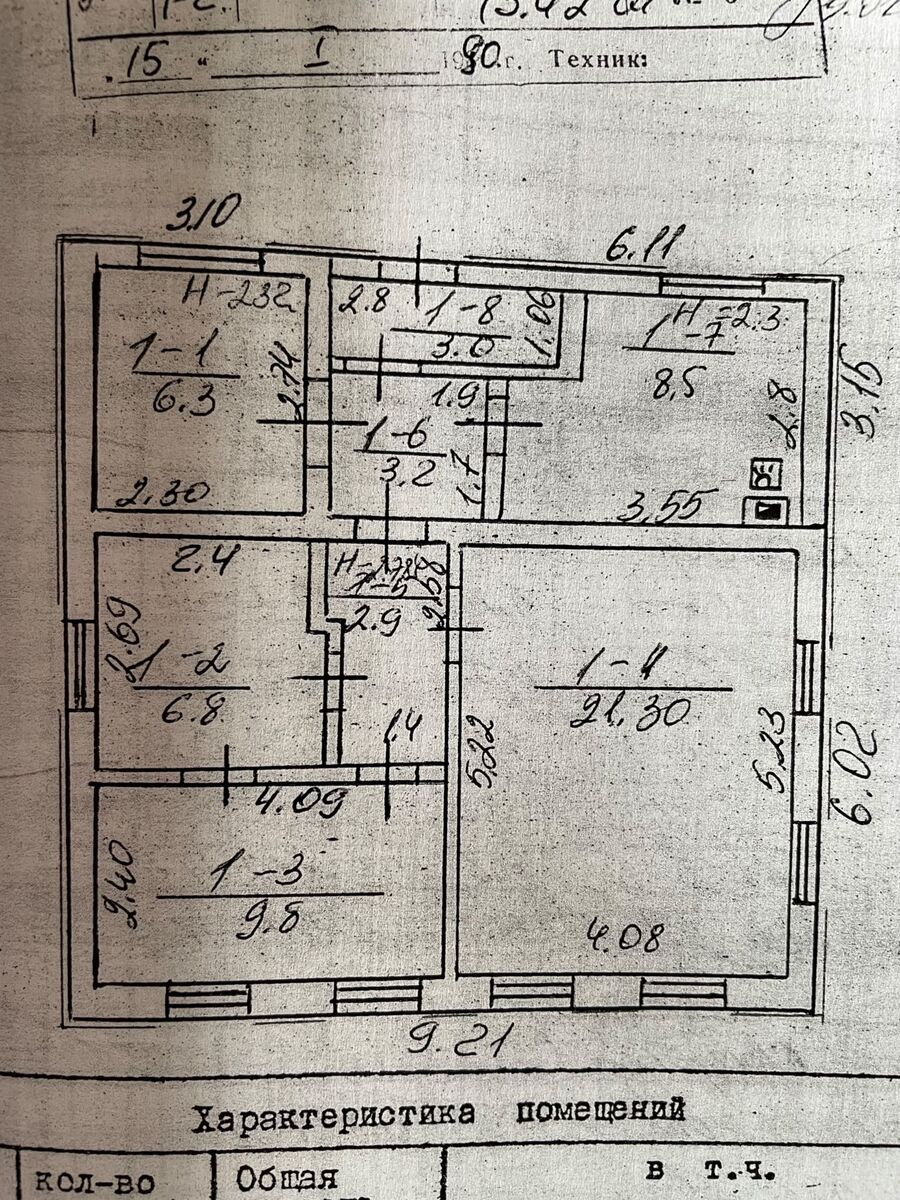 1-2.
15.42
„15“ I 1990г. Техник:
3.10
6.11
Н-232
1-1
6.3
2.74
2.30
2.8
1-8
3.0
1.06
Н=2.3
1-7
8,5
2.8
3.55
3.15
1.9
1-6
3.2
1.7
2.4
2.69
1-2
6.8
1-5
2.9
2.58
1.4
1-4
21.30
5,22
5,23
6.02
4.09
1-3
9.8
2.40
4.08
9.21
Характеристика помещений
кол-во
Общая
в т.ч.